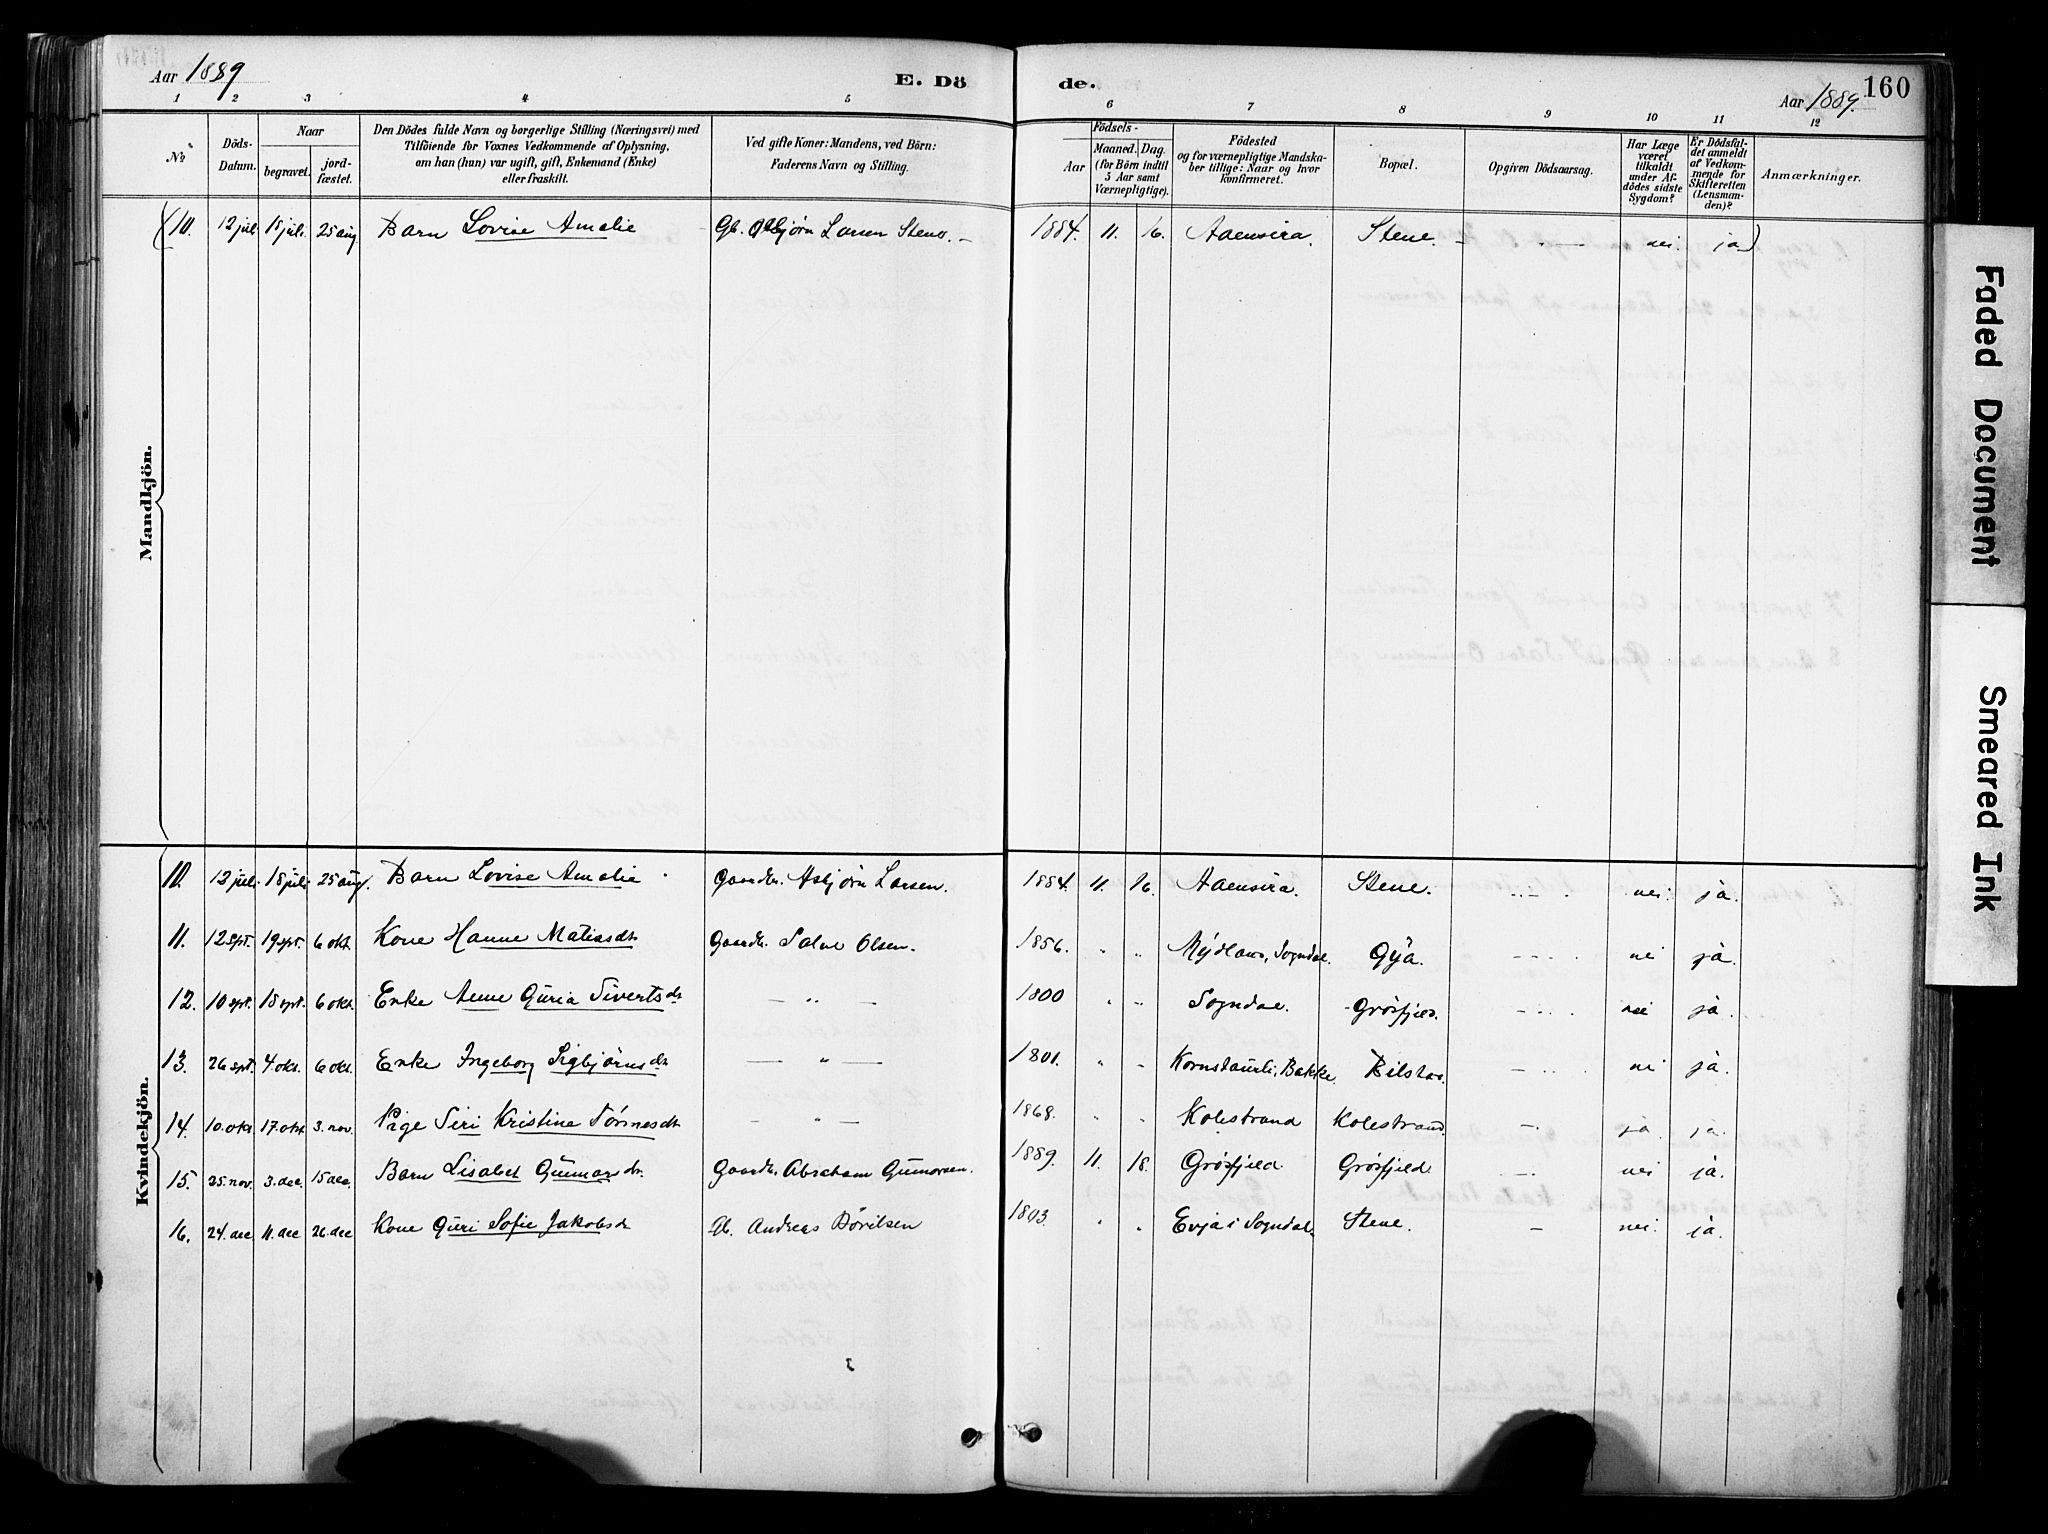 Aar 1889
E. Dö
de.
Aar 1889.
160
1 2 3 4 5 6 7 8 9 10 11 12
No
Döds-
Datum.
Naar
begravet.
jord-
fæstet.
Den Dödes fulde Navn og borgerlige Stilling (Næringsvei) med
Tilföiende for Voxnes Vedkommende af Oplysning,
om han (hun) var ugift, gift, Enkemand (Enke)
eller fraskilt.
Ved gifte Koner: Mandens, ved Börn:
Faderens Navn og Stilling.
Födsels-
Aar
Maaned.
Dag.
(for Börn indtil
5 Aar samt
Værnepligtige).
Födested
og for værnepligtige Mandska-
ber tillige: Naar og hvor
konfirmeret.
Bopæl.
Opgiven Dödsaarsag.
Har Læge
været
tilkaldt
under Af-
dödes sidste
Sygdom?
Er Dödsfal-
det anmeldt
af Vedkom-
mende for
Skifteretten
(Lensman-
den)?
Anmærkninger.
Mandkjön.
(10. 12 juli 18 juli 25 aug. Barn Lovise Amalie Gb. Asbjørn Larsen Stene. 1884. 11. 16. Aaensira. Stene. nei. ja)
Kvindekjön.
10. 12 juli 18 juli 25 aug. Barn Lovise Amalie Gaardbr. Asbjørn Larsen. 1884. 11. 16. Aaensira. Stene. nei. ja.
11. 12 spt. 19 spt. 6 okt. Kone Hanne Matiasdt. Gaardbr. Salve Olsen. 1856. " " Sogndal. Gya. nei ja.
12. 10 spt. 18 spt. 6 okt. Enke Anne Guria Sivertsdt. — " — 1800 " " Sogndal. Grøsfjeld. nei ja.
13. 26 spt. 4. okt. 6 okt. Enke Ingeborg Sigbjørnsdt. — " — 1801. " " Kornstaurli, Bakke. Bilstad. nei ja.
14. 10. okt. 17. okt. 3. nov. Pige Siri Kristine Tørresdt. — " — 1868. " " Kolestrand Kolestrand. ja. ja.
15. 25. nov. 3. dec. 15 dec. Barn Lisabet Gunnarsdt. Gaardbr. Abraham Gunnarsen. 1889. 11. 18. Grøsfjeld. Grøsfjeld. nei ja.
16. 24. dec. 11. dec 26. dec Kone Guri Sofie Jakobsdt Gb. Andreas Børilsen 1843. " " Evja i Sogndal. Stene. nei. ja.
Faded Document
Smeared Ink